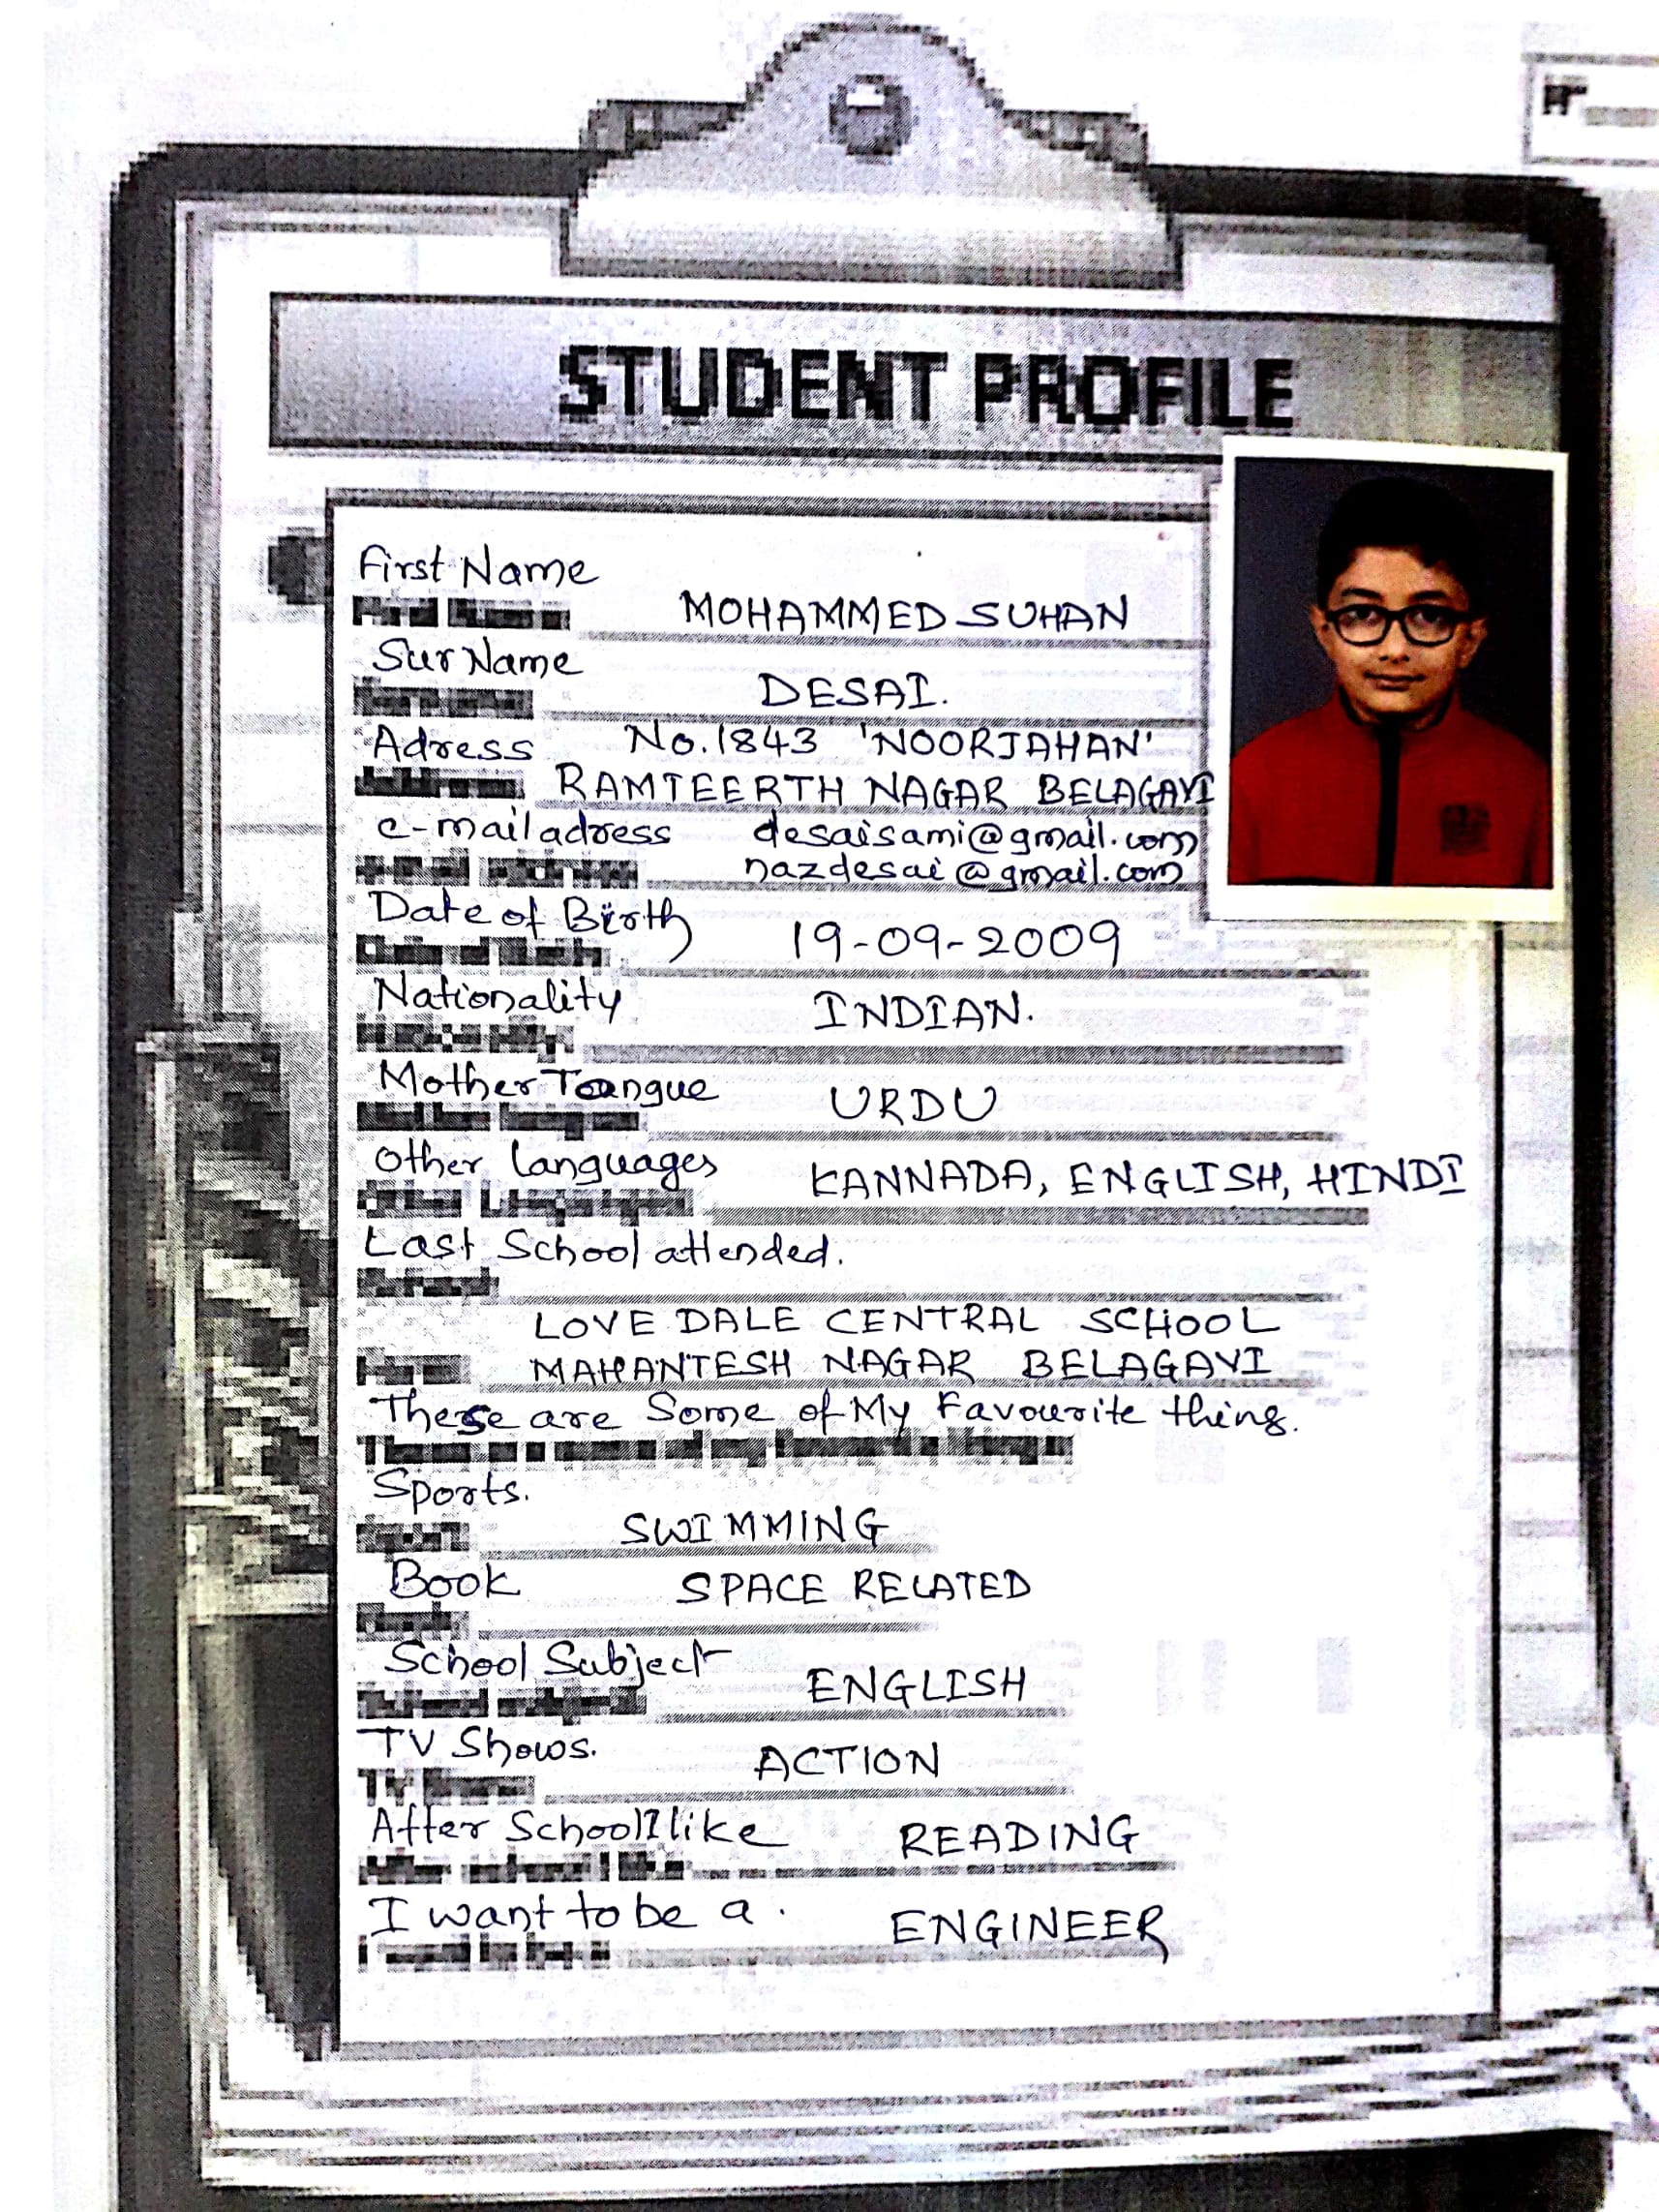 STUDENT PROFILE
First Name
MOHAMMED SUHAN
Sur Name
DESAI.
Adress No.1843 'NOORJAHAN'
RAMTEERTH NAGAR BELAGAVI
e-mail adress desaisami@gmail.com
nazdesai@gmail.com
Date of Birth
19-09-2009
Nationality INDIAN.
Mother Toungue URDU
Other languages KANNADA, ENGLISH, HINDI
Last School attended.
LOVE DALE CENTRAL SCHOOL
MAHANTESH NAGAR BELAGAVI
These are Some of My Favourite thing.
Sports.
SWIMMING
Book SPACE RELATED
School Subject
ENGLISH
TV Shows. ACTION
After School I like READING
I want to be a. ENGINEER